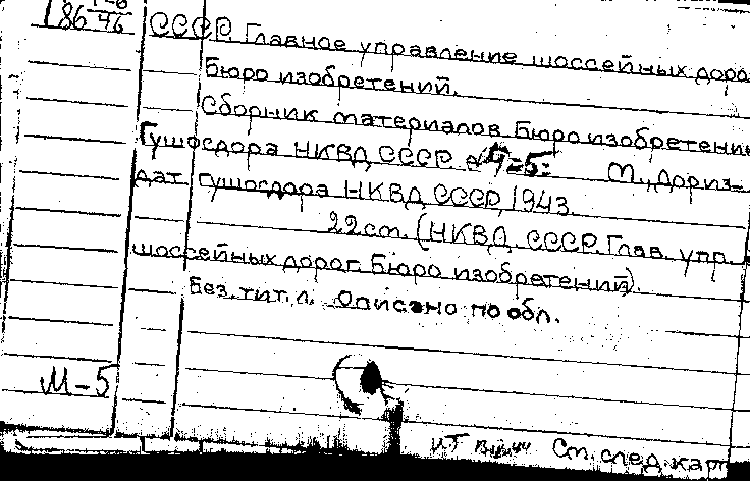 СССР. Главное управление шоссейных доро
Бюро изобретений.
Сборник материалов Бюро изобретени
Гушосдора НКВД СССР в 4-5: М., Дориз-
дат Гушосдора НКВД СССР, 1943.
22 см. (НКВД СССР. Глав. упр.
шоссейных дорог. Бюро изобретений).
Без. тит. л. Описано по обл.
М-5
См. след. карт